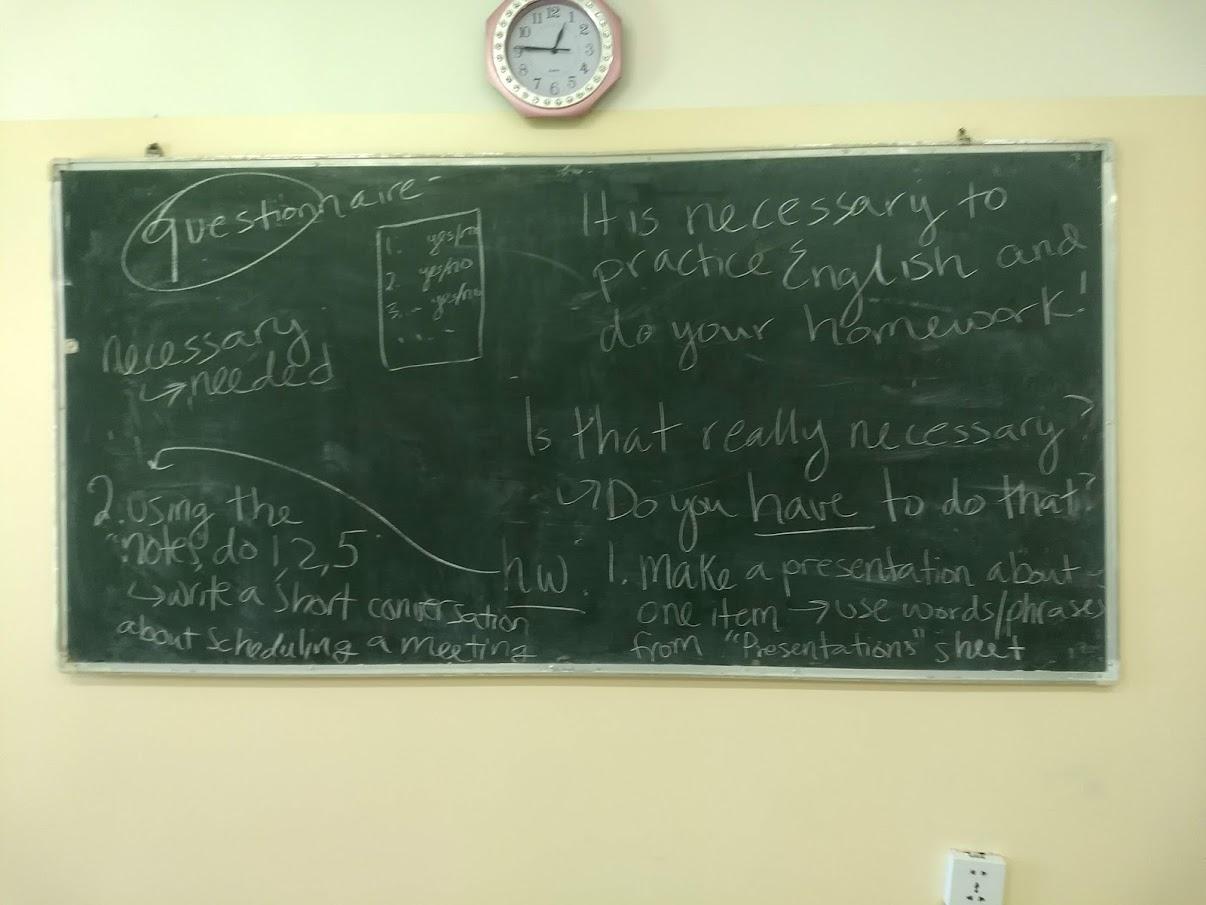 12
1
2
3
4
5
6
7
8
9
10
11
Questionnaire
1. yes/no
2. yes/no
3. - yes/no
necessary
↳ needed
It is necessary to
practice English and
do your homework!
Is that really necessary?
↳ Do you have to do that?
hw.
1. Make a presentation about
one item → use words/phrases
from "Presentations" sheet
2. Using the
notes, do 1, 2, 5
↳ write a short conversation
about scheduling a meeting